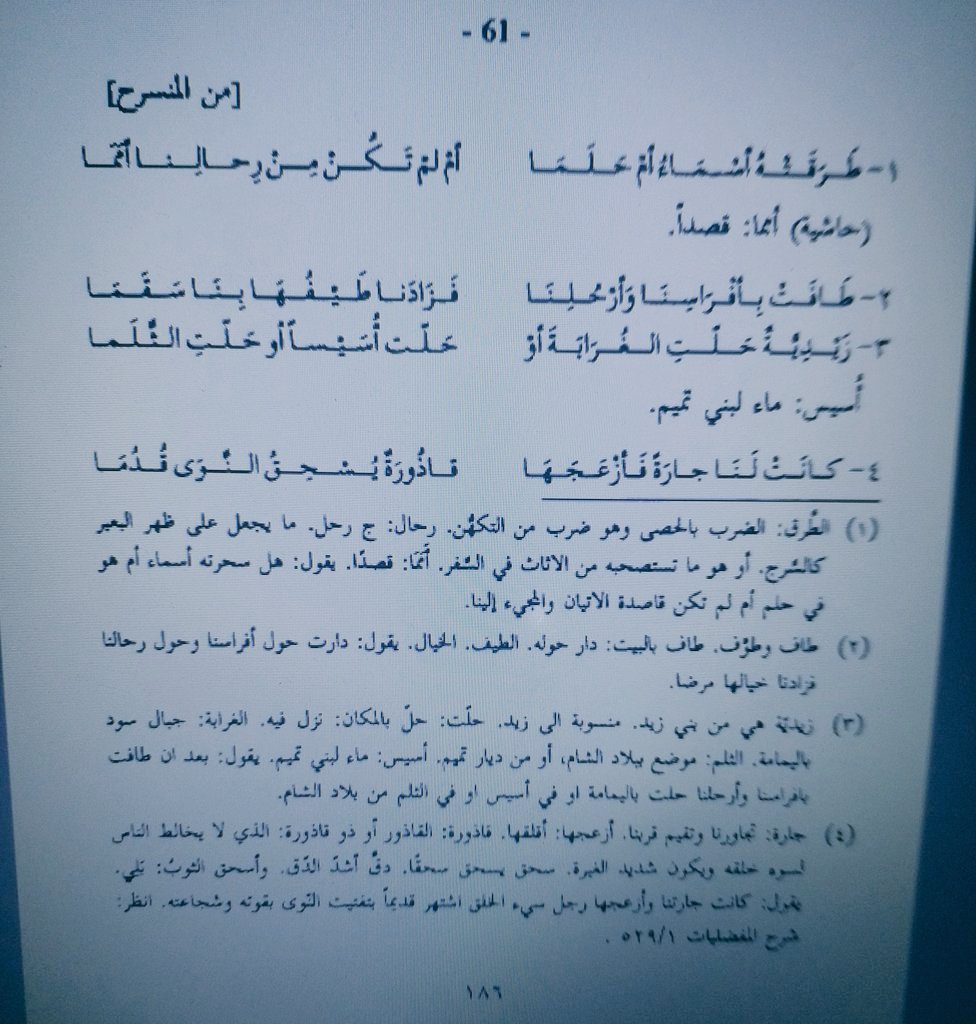 - 61 -
[من المنسرح]
١- طَرَقَتْهُ أَسْمَاءُ أَمْ حَلَمَا أَمْ لَمْ تَكُنْ مِنْ رِحالِنا أَمَمَا
(حاشية) أمما: قصداً.
٢- طَافَتْ بِأَفْرَاسِنَا وَأَرْحُلِنَا فَزَادَنا طَيْفُهَا بِنَا سَقَمَا
٣- زَيْدِيَّةٌ حَلَّتِ الغُرَابَةَ أَوْ حَلَّت أُسَيْساً أو حَلَّتِ الثَّلَما
أُسيس: ماء لبني تميم.
٤- كانَتْ لَنَا جارَةً فَأَزْعَجَهَا قاذُورَةٌ يُسْحِقُ النَّوَى قُدُمَا
(١) الطَّرق: الضرب بالحصى وهو ضرب من التكهُّن. رحال: ج رحل. ما يجعل على ظهر البعير
كالسَّرج. أو هو ما تستصحبه من الاثاث في السَّفر. أَمَمَا: قصدًا. يقول: هل سحرته أسماء أم هو
في حلم أم لم تكن قاصدة الاتيان والمجيء إلينا.
(٢) طاف وطوَّف. طاف بالبيت: دار حوله. الطيف. الخيال. يقول: دارت حول أفراسنا وحول رحالنا
فزادنا خيالها مرضا.
(٣) زيديّة هي من بني زيد. منسوبة الى زيد. حلّت: حلّ بالمكان: نزل فيه. الغرابة: جبال سود
باليمامة. الثلم: موضع ببلاد الشام، أو من ديار تميم. أسيس: ماء لبني تميم. يقول: بعد ان طافت
بافراسنا وأرحلنا حلت باليمامة او في أسيس او في الثلم من بلاد الشام.
(٤) جارة: تجاورنا وتقيم قربنا. أزعجها: أقلقها. قاذورة: القاذور أو ذو قاذورة: الذي لا يخالط الناس
لسوء خلقه ويكون شديد الغيرة. سحق يسحق سحقًا. دقَّ أشدّ الدّق. وأسحق الثوبُ: بَلي.
يقول: كانت جارتنا وأزعجها رجل سيء الخلق اشتهر قديماً بتفتيت النّوى بقوته وشجاعته. انظر:
شرح المفضليات ٥٢٩/١ .
١٨٦